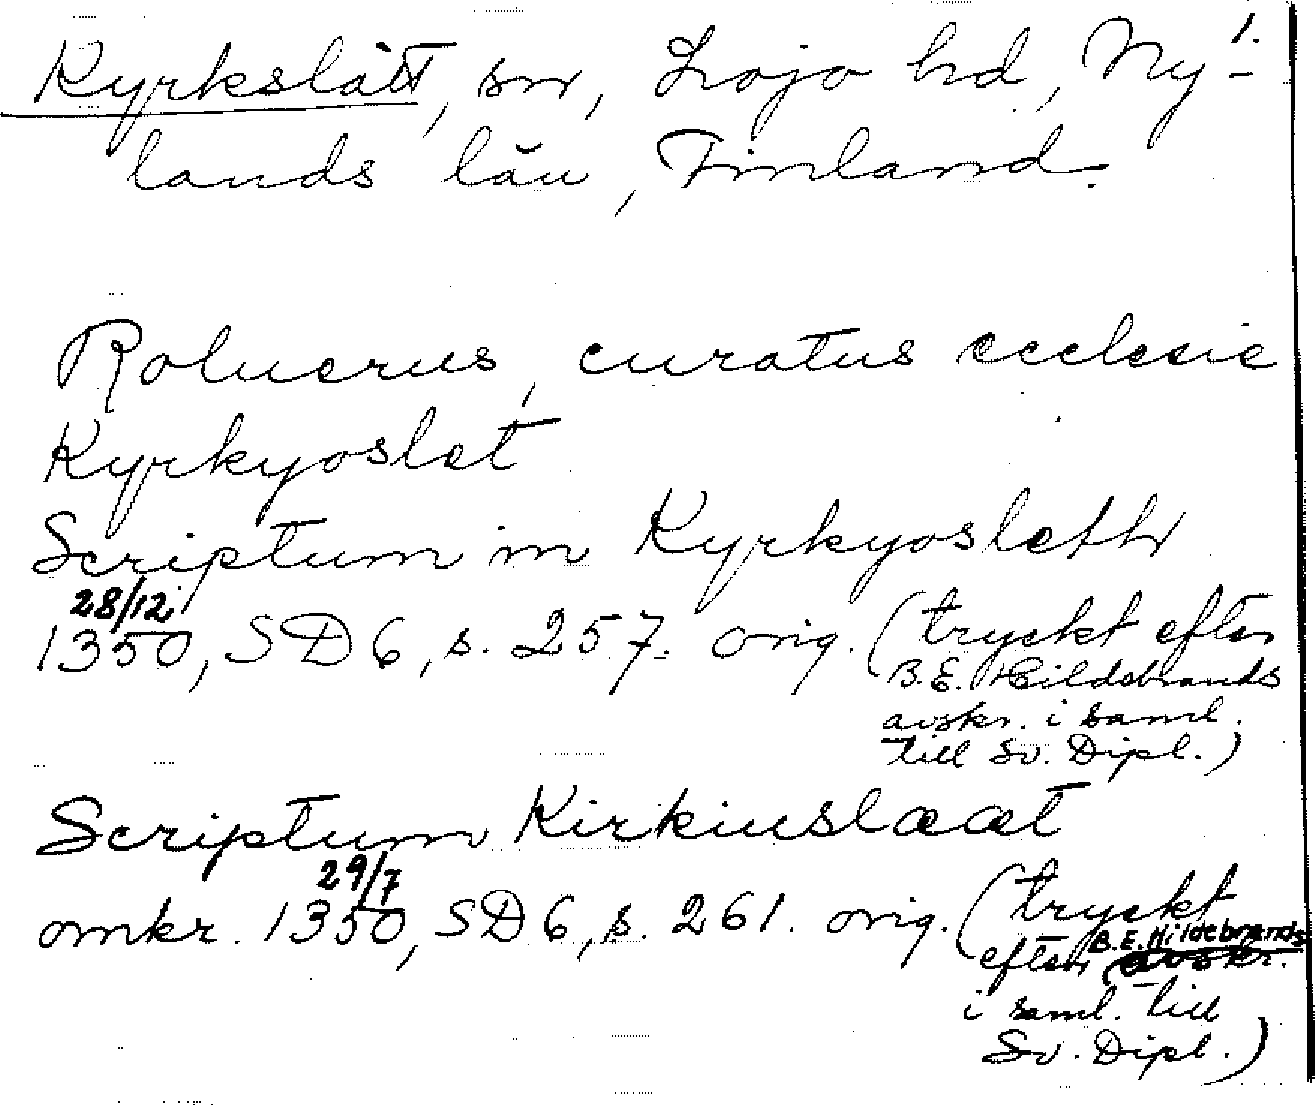 1.
Kyrkslätt, sn, Lojo hd, Ny-
lands län, Finland.
Roluerus, curatus ecclesie
Kyrkyoslæt
Scriptum in Kyrkyosleth
28/12
1350, SD 6, s. 257. orig. (tryckt efter
B.E. Hildebrands
avskr. i saml.
till Sv. Dipl.)
Scriptum Kirkiuslææt
29/7
omkr. 1350, SD 6, s. 261. orig. (tryckt
efter B.E. Hildebrands avskr.
i saml. till
Sv. Dipl.)